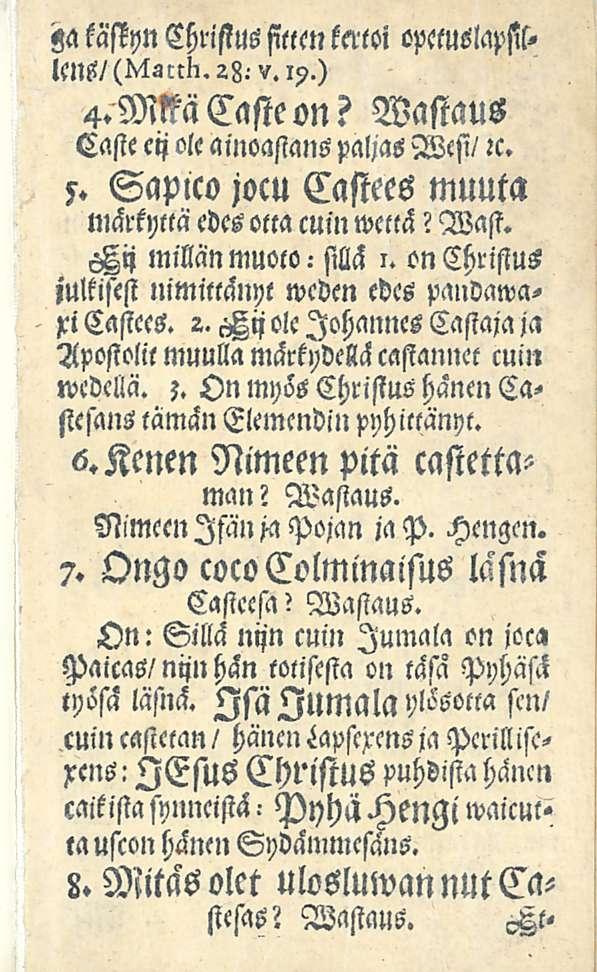 ga käskyn Christus sitten kertoi opetuslapsil-
lens/ (Matth. 28: v. 19.)
4. Mikä Caste on? Wastaus
Caste eij ole ainoastans paljas Wesi/ ꝛc.
5. Sapico jocu Castees muuta
märkyttä edes otta cuin wettä? Wast.
Eij millän muoto: sillä 1. on Christus
julkisest nimittänyt weden edes pandawa-
xi Castees. 2. Eij ole Johannes Castaja ja
Apostolit muulla märkydellä castannet cuin
wedellä. 3. On myös Christus hänen Ca-
stesans tämän Elemendin pyhittänyt.
6. Kenen Nimeen pitä castetta-
man? Wastaus.
Nimeen Isän ja Pojan ja P. Hengen.
7. Ongo coco Colminaisus läsnä
Casteesa? Wastaus.
On: Sillä nijn cuin Jumala on joca
Paicas/ nijn hän totisesta on täsä Pyhäsä
työsä läsnä. Isä Jumala ylösotta sen/
cuin castetan/ hänen Lapsexens ja Perillise-
xens: JEsus Christus puhdista hänen
caikista synneistä: Pyhä Hengi waicut-
ta uscon hänen Sydämmesäns.
8. Mitäs olet ulosluwannut Ca-
stesas? Wastaus. Et-